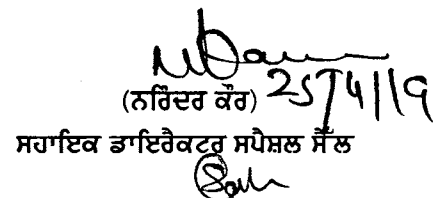 (ਨਰਿੰਦਰ ਕੌਰ) 25/4/19
ਸਹਾਇਕ ਡਾਇਰੈਕਟਰ ਸਪੈਸ਼ਲ ਸੈੱਲ